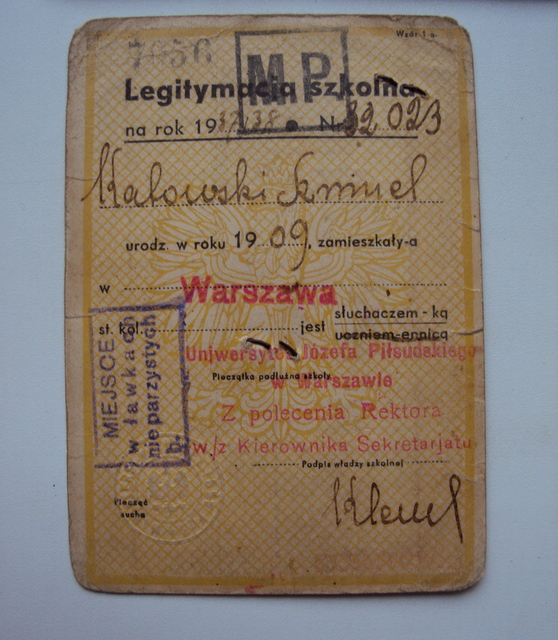 Wzór 1 a.
7056
M.P
Legitymacja szkolna
na rok 1937/38 Nr 32023
Kalowski Szmuel
urodz. w roku 1909, zamieszkały-a
w Warszawa
st. kol. jest słuchaczem - ką
uczniem-ennicą
Uniwersytet Józefa Piłsudskiego
Pieczątka podłużna szkoły
w Warszawie
Z polecenia Rektora
w/z Kierownika Sekretarjatu
Podpis władzy szkolnej
MIEJSCE
w ławkach
nieparzystych
b.
Pieczęć
sucha